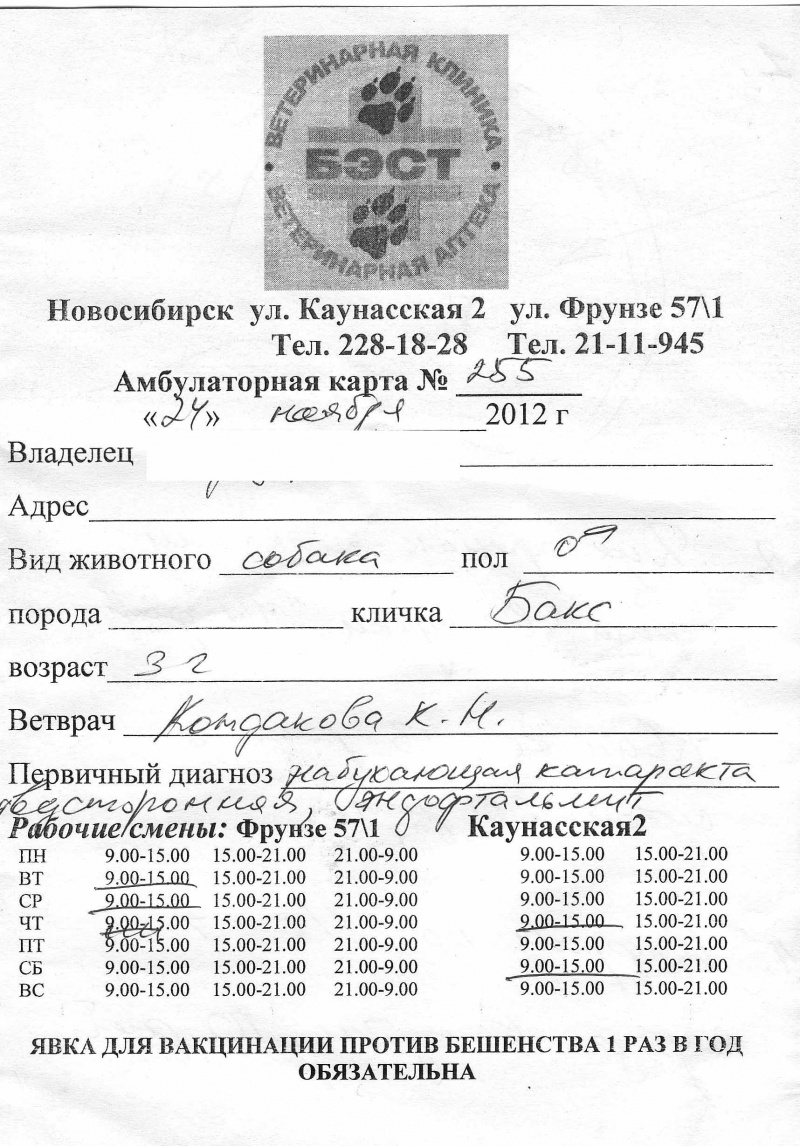 ВЕТЕРИНАРНАЯ КЛИНИКА
БЭСТ
ВЕТЕРИНАРНАЯ АПТЕКА
Новосибирск ул. Каунасская 2 ул. Фрунзе 57\1
Тел. 228-18-28 Тел. 21-11-945
Амбулаторная карта № 255
«24» ноября 2012 г
Владелец
Адрес
Вид животного собака пол ♂
порода кличка Бакс
возраст 3 г
Ветврач Кондакова К. Н.
Первичный диагноз набухающая катаракта
двусторонняя, эндофтальмит
Рабочие смены: Фрунзе 57\1 Каунасская2
ПН 9.00-15.00 15.00-21.00 21.00-9.00 9.00-15.00 15.00-21.00
ВТ 9.00-15.00 15.00-21.00 21.00-9.00 9.00-15.00 15.00-21.00
СР 9.00-15.00 15.00-21.00 21.00-9.00 9.00-15.00 15.00-21.00
ЧТ 9.00-15.00 15.00-21.00 21.00-9.00 9.00-15.00 15.00-21.00
ПТ 9.00-15.00 15.00-21.00 21.00-9.00 9.00-15.00 15.00-21.00
СБ 9.00-15.00 15.00-21.00 21.00-9.00 9.00-15.00 15.00-21.00
ВС 9.00-15.00 15.00-21.00 21.00-9.00 9.00-15.00 15.00-21.00
ЯВКА ДЛЯ ВАКЦИНАЦИИ ПРОТИВ БЕШЕНСТВА 1 РАЗ В ГОД
ОБЯЗАТЕЛЬНА